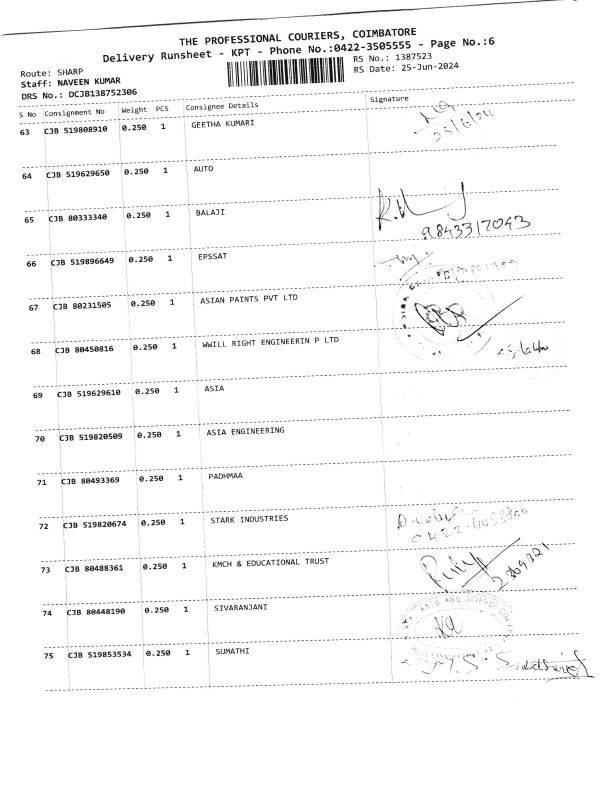 THE PROFESSIONAL COURIERS, COIMBATORE
Delivery Runsheet - KPT - Phone No.:0422-3505555 - Page No.:6
Route: SHARP
RS No.: 1387523
Staff: NAVEEN KUMAR
RS Date: 25-Jun-2024
DRS No.: DCJB138752306
S No Consignment No Weight PCS Consignee Details Signature
63 CJB 519808910 0.250 1 GEETHA KUMARI
25/6/24
64 CJB 519629650 0.250 1 AUTO
65 CJB 80333340 0.250 1 BALAJI
9843317043
66 CJB 519896649 0.250 1 EPSSAT
67 CJB 80231505 0.250 1 ASIAN PAINTS PVT LTD
68 CJB 80450816 0.250 1 WWILL RIGHT ENGINEERIN P LTD
69 CJB 519629610 0.250 1 ASIA
70 CJB 519820509 0.250 1 ASIA ENGINEERING
71 CJB 80493369 0.250 1 PADHMAA
72 CJB 519820674 0.250 1 STARK INDUSTRIES
73 CJB 80488361 0.250 1 KMCH & EDUCATIONAL TRUST
74 CJB 80448190 0.250 1 SIVARANJANI
ARTS AND SCIENCE
75 CJB 519853534 0.250 1 SUMATHI